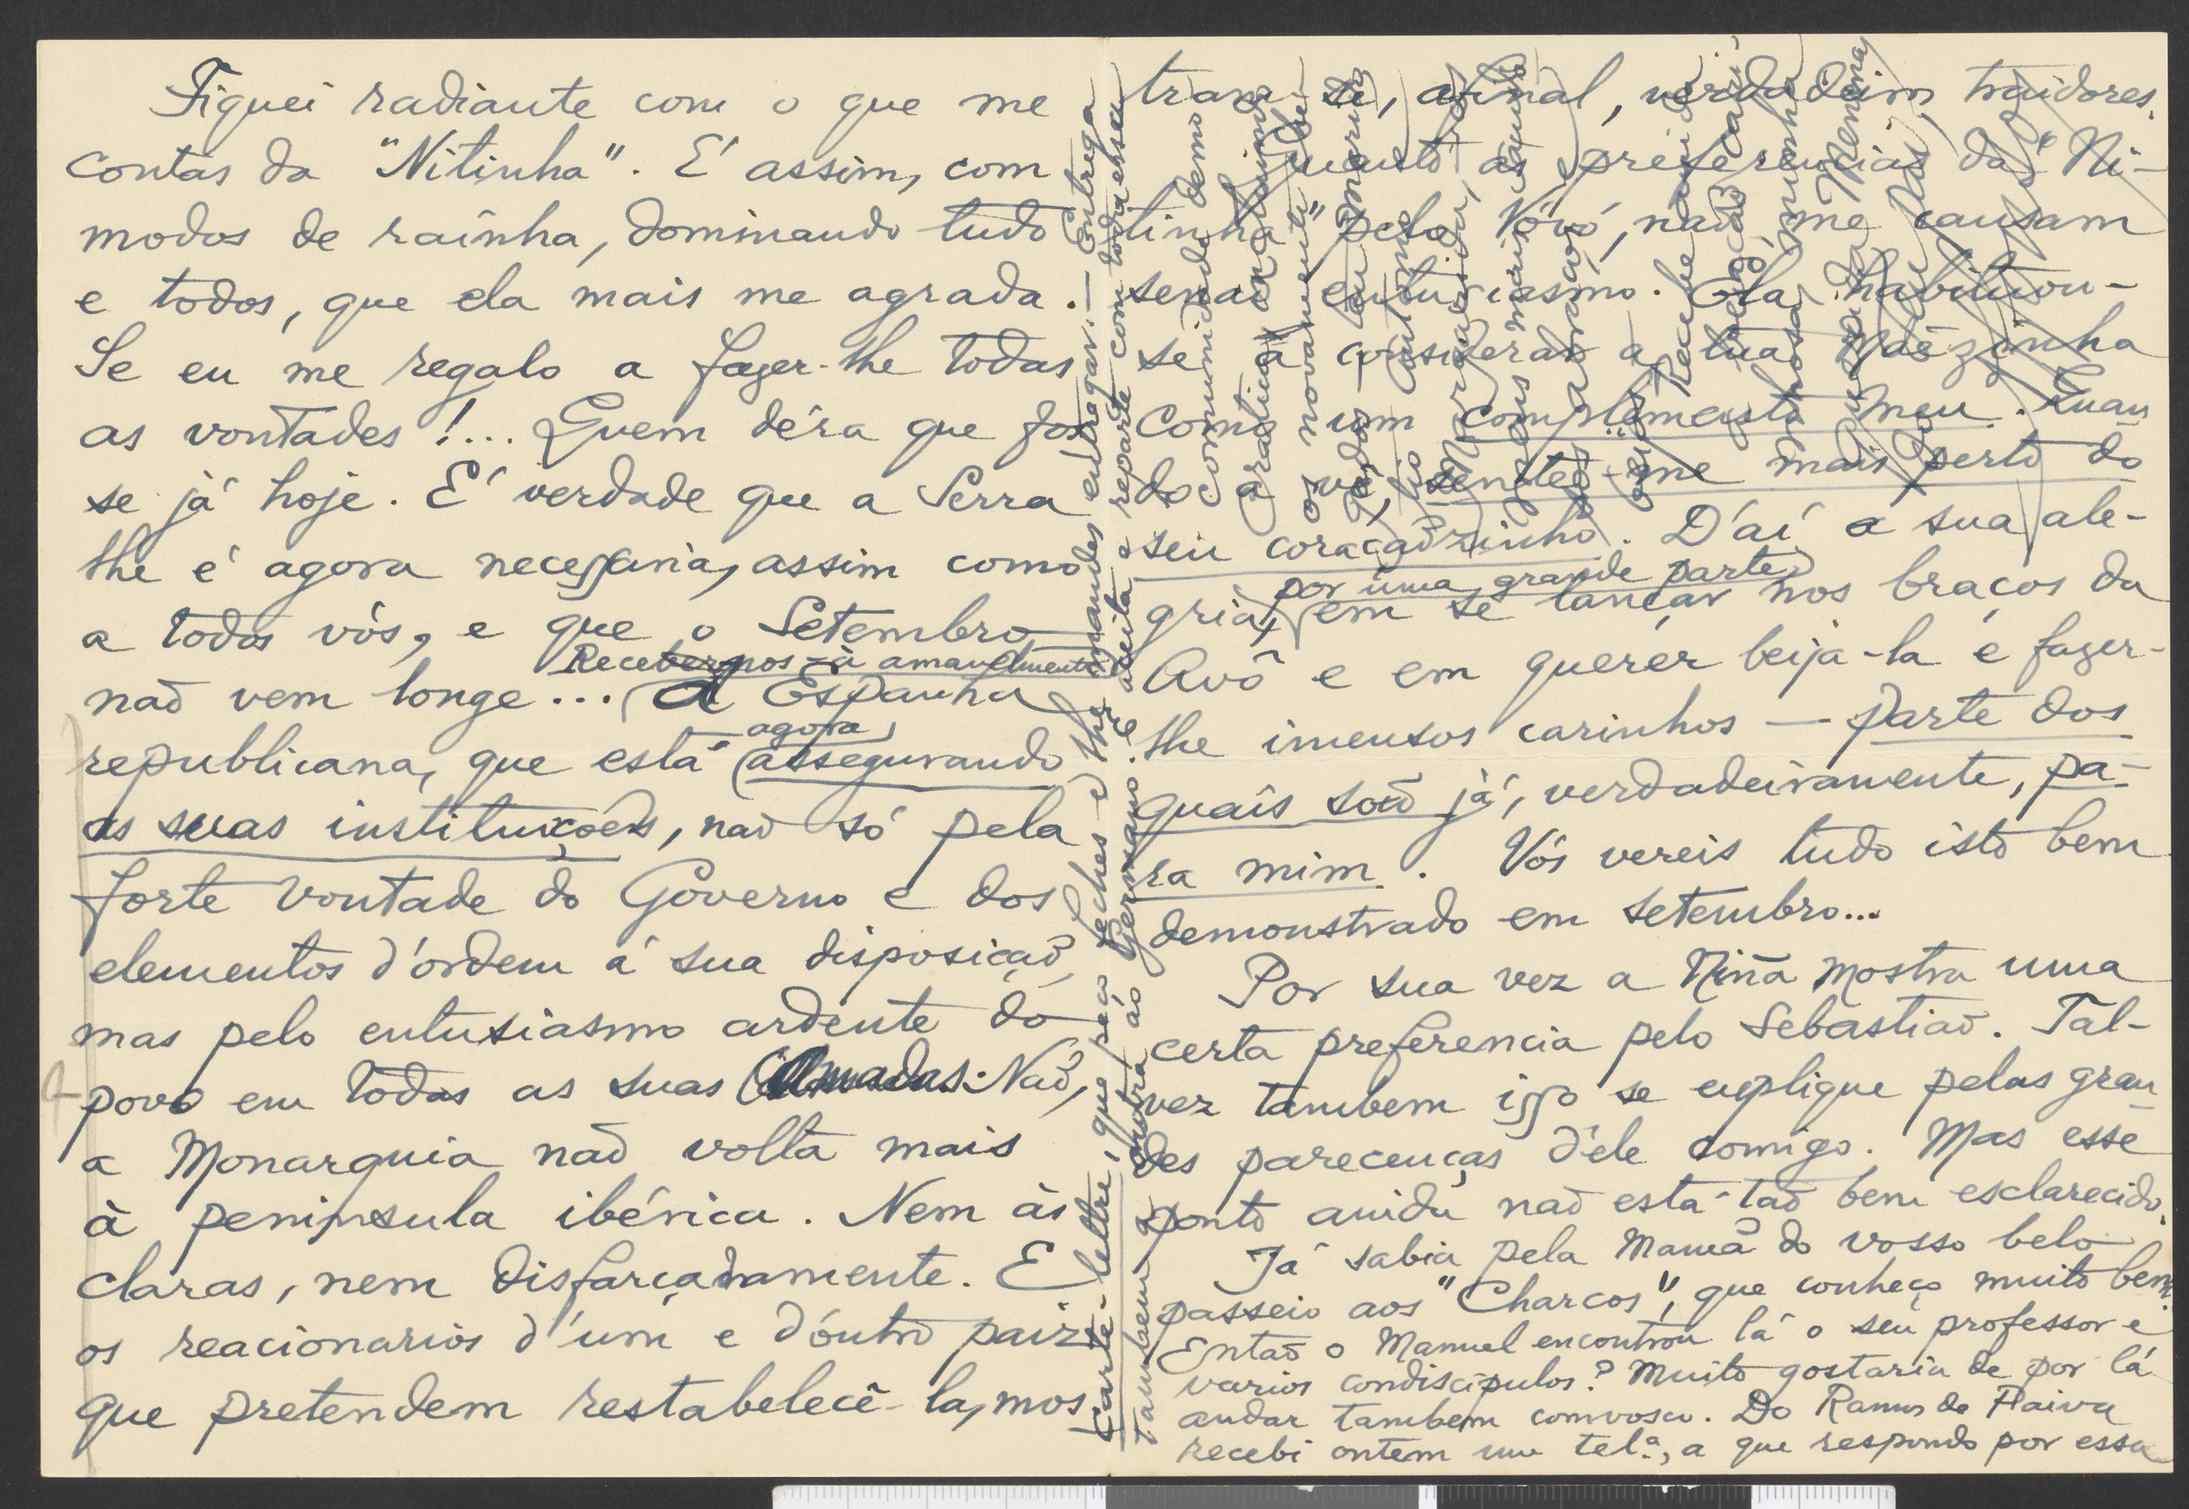 Fiquei radiante com o que me
contas da "Nitinha". E' assim, com
modos de raínha, dominando tudo
e todos, que ela mais me agrada.
Se eu me regalo a fazer-lhe todas
as vontades!... Quem déra que fos
se já hoje. E' verdade que a Serra
lhe é agora necessaria, assim como
a todos vós, e que o Setembro
não vem longe... Receber-nos-à amavelmente
A Espanha
republicana, que está agora assegurando
as suas instituições, não só pela
forte vontade do Governo e dos
elementos d'ordem á sua disposição,
mas pelo entusiasmo ardente do
povo em todas as suas camadas. Não,
a Monarquia não volta mais
à peninsula ibérica. Nem às
claras, nem disfarçadamente. E
os reacionarios d'um e d'outro paiz
que pretendem restabelecê-la, mos
tram-se, afinal, verdadeiros traidores.
Quanto ás preferencias da "Ni-
tinha" pela Vóvó, não me causam
senão entusiasmo. Ela habituou-
se a considerar a tua Mãezinha
como um complemento meu. Quan
do a vê, sente-me mais perto do
seu coraçãozinho. D'aí a sua ale-
gria, por uma grande parte, em se lançar nos braços da
Avó e em querer beija-la e fazer-
lhe imensos carinhos — parte dos
quais são já, verdadeiramente, pa-
ra mim. Vós vereis tudo isto bem
demonstrado em setembro...
Por sua vez a Niña mostra uma
certa preferencia pelo Sebastião. Tal-
vez tambem isso se explique pelas gran
des parecenças d'ele comigo. Mas esse
ponto ainda não está tão bem esclarecido.
Já sabia pela Mamã do vosso belo
passeio aos "Charcos", que conheço muito bem.
Então o Manuel encontrou lá o seu professor e
varios condiscipulos? Muito gostaria de por lá
andar tambem comvosco. Do Ramos de Paiva
recebi ontem um tel.ª, a que respondo por essa
carte-lettre, que peço feches e lhe mandes entregar. — Entrega
tambem a outra ao Germano. E aceita e reparte com toda essa
comunidade
novamente
Recebe ainda